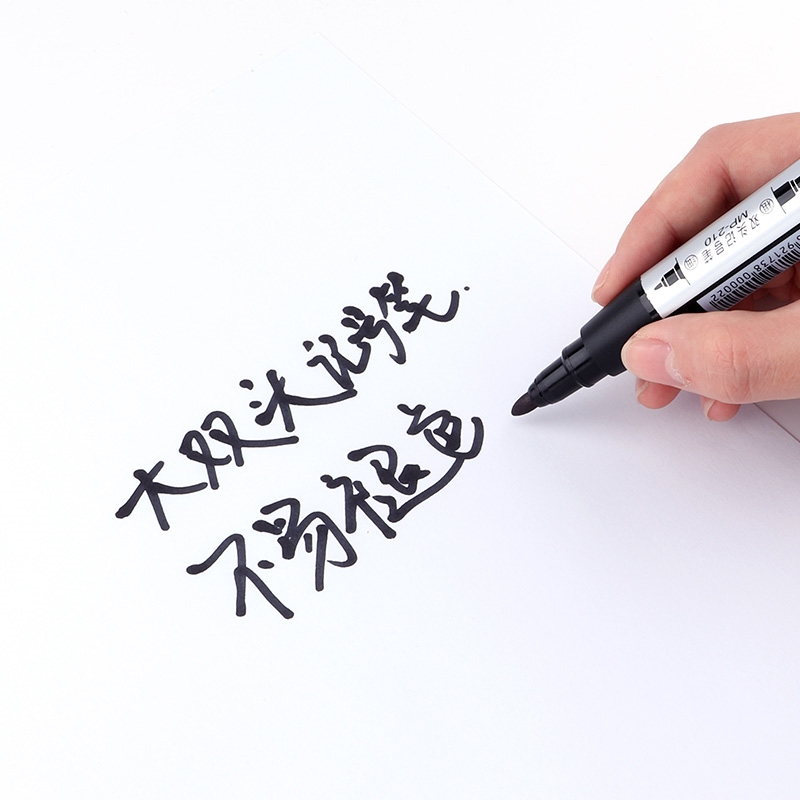 大双头记号笔
不易褪色
双头记号笔
MP-210
921738 000022